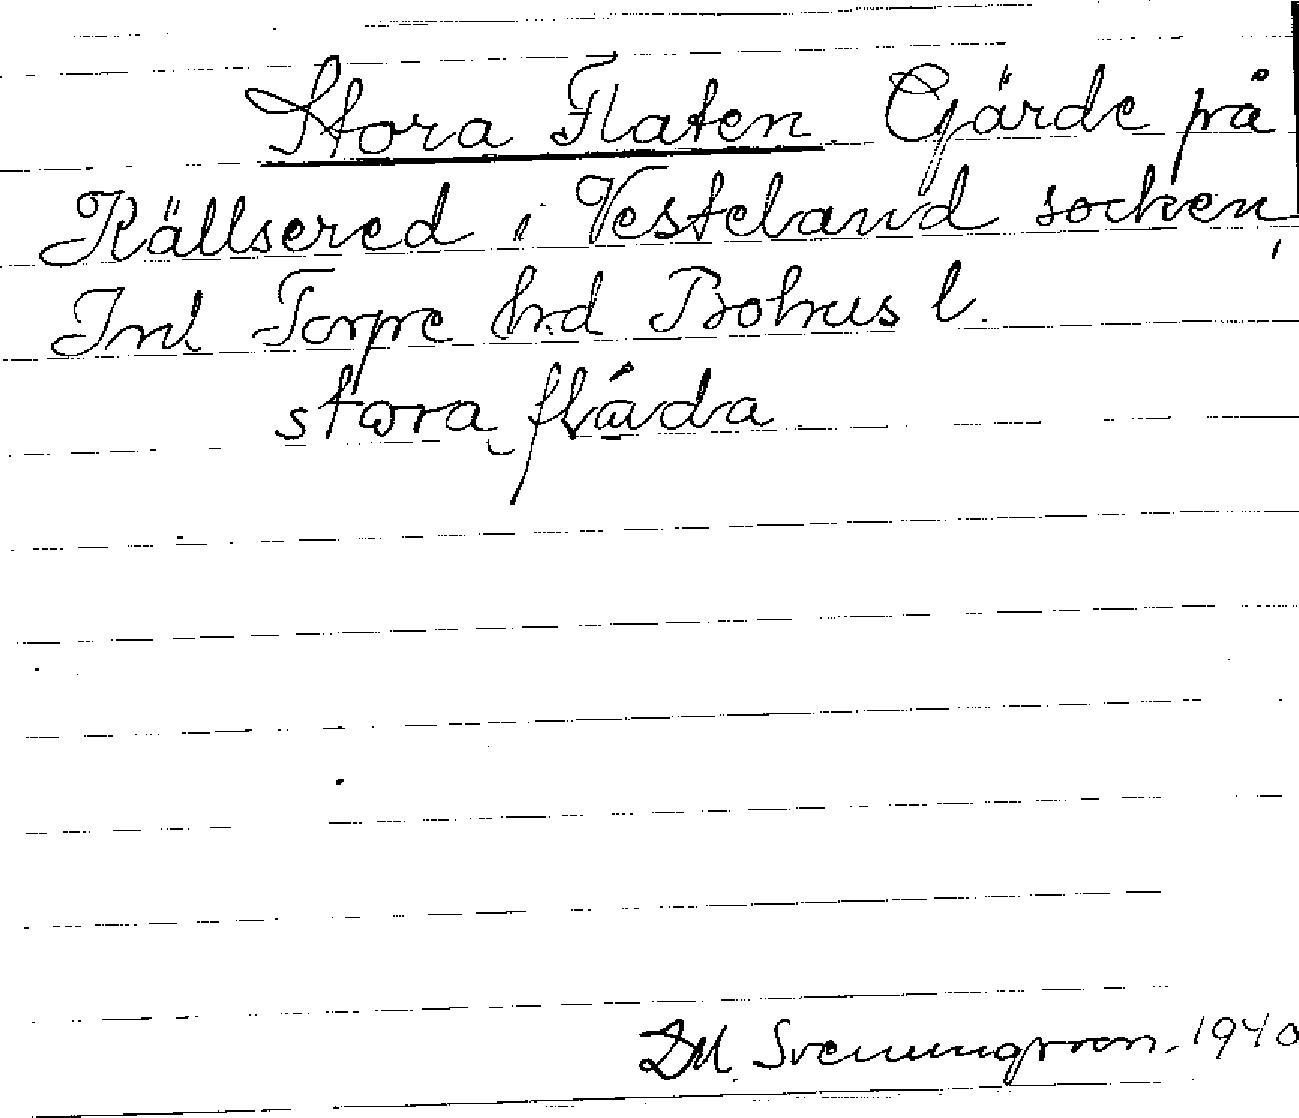 Stora Flaten Gärde på
Källsered i Vesteland socken,
Inl Torpe hrd Bohus l.
stora flåda
DM. Svenungsson. 1940